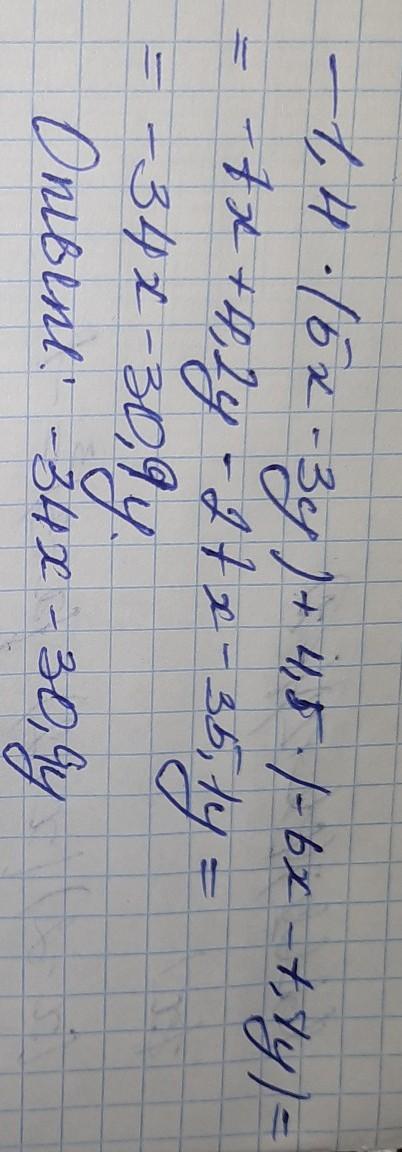 -1,4 · (5x - 3y) + 4,5 · (-6x - 7,8y) =
= -7x + 4,2y - 27x - 35,1y =
= -34x - 30,9y.
Ответ: -34x - 30,9y